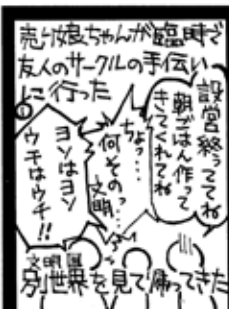 売り娘ちゃんが臨時で
友人のサークルの手伝い
に行った
設営終ってね
朝ごはん作って
きてくれてね
ちょっ…
何その…
文明
ヨソはヨソ
ウチはウチ!!
文明圏
別世界を見て帰ってきた